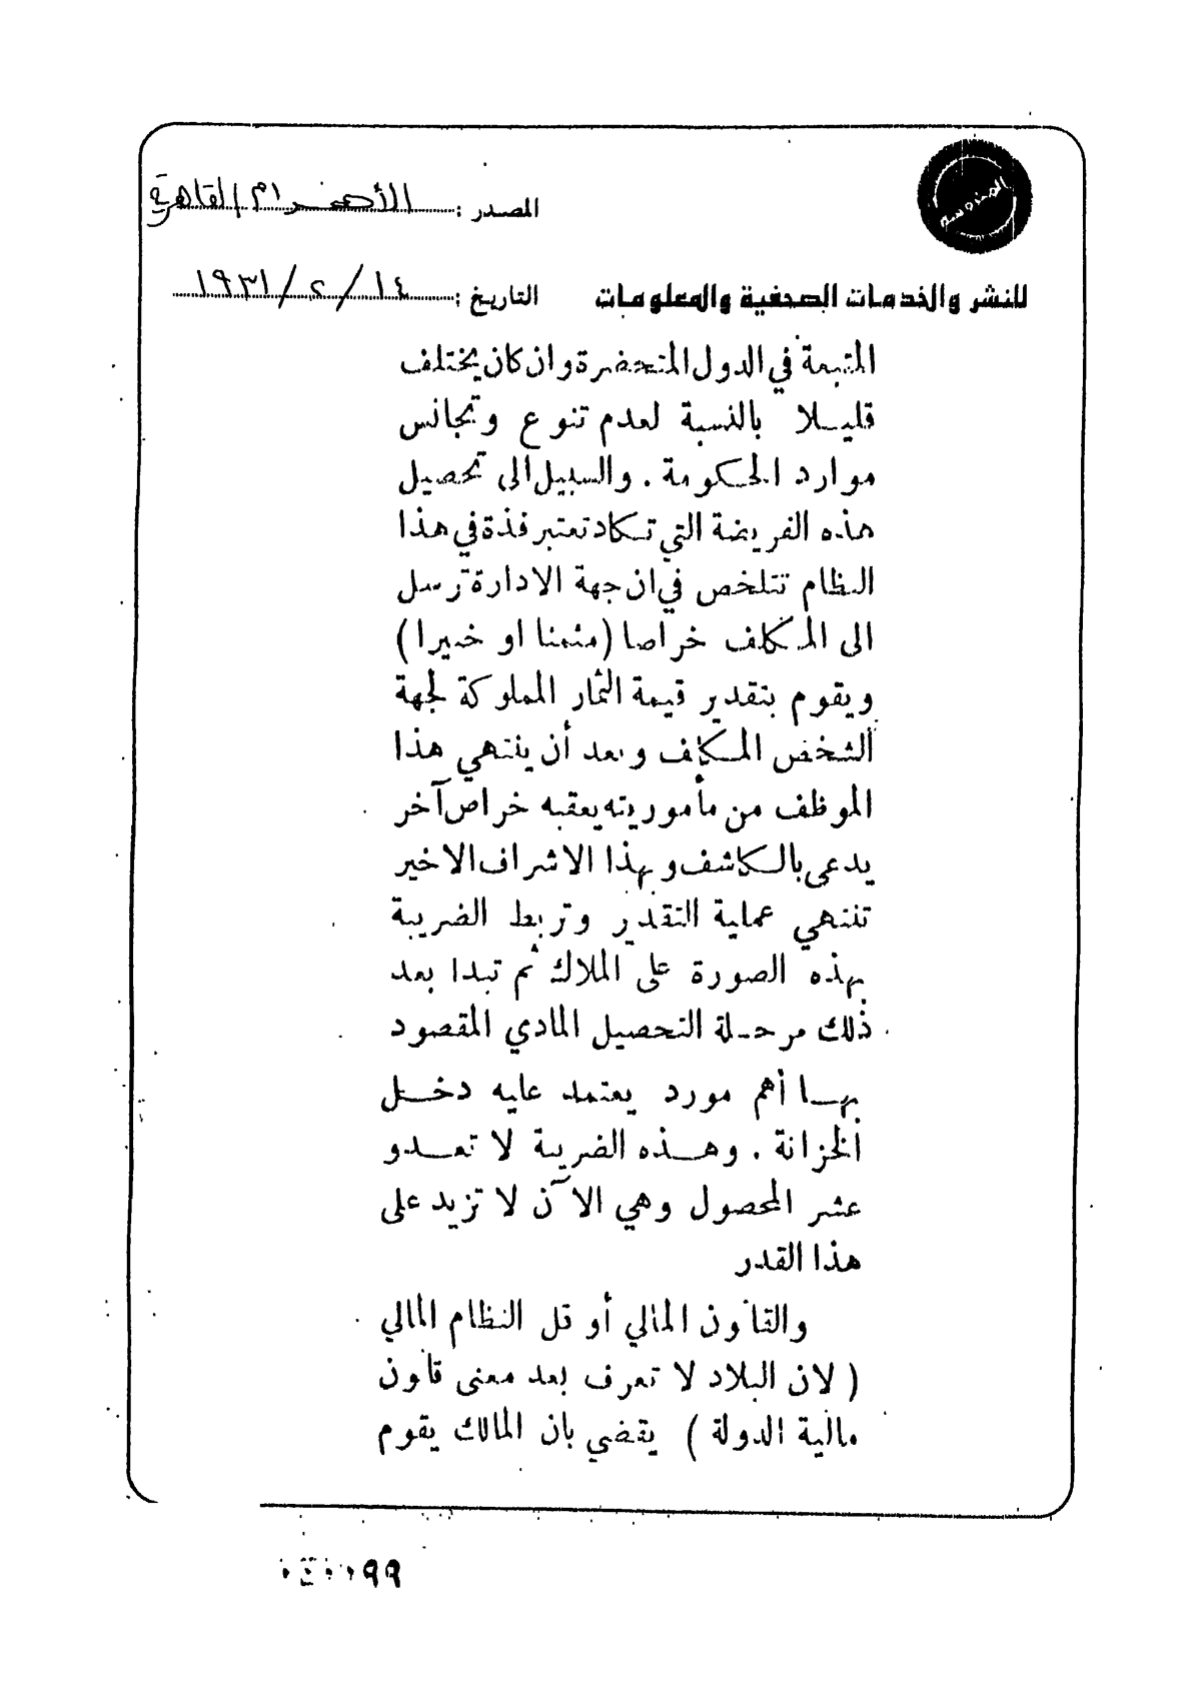 المصدر : الأهرام / القاهرة
للنشر والخدمات الصحفية والمعلومات
التاريخ : ١٤ / ٢ / ١٩٣١
المتبعة في الدول المتحضرة وان كان يختلف
قليـلا بالنسبة لعدم تنوع وتجانس
موارد الحكومة . والسبيل الى تحصيل
هذه الفريضة التي تـكاد تعتبر فذة في هذا
النظام تتلخص في ان جهة الادارة ترسل
الى المكلف خراصا (مثمنا او خبيرا)
ويقوم بتقدير قيمة الثمار المملوكة لجهة
الشخص المكلف وبعد أن ينتهي هذا
الموظف من مأموريته يعقبه خراص آخر
يدعى بالـكاشف وبهذا الاشراف الاخير
تنتهي عملية التقدير وتربط الضريبة
بهذه الصورة على الملاك ثم تبدا بعد
ذلك مرحـلة التحصيل المادي المقصود
بهـا أهم مورد يعتمد عليه دخـل
الخزانة . وهـذه الضريبة لا تعـدو
عشر المحصول وهي الآن لا تزيد على
هذا القدر
والقانون المالي أو قل النظام المالي
( لان البلاد لا تعرف بعد معنى قانون
مالية الدولة ) يقضي بان المالك يقوم